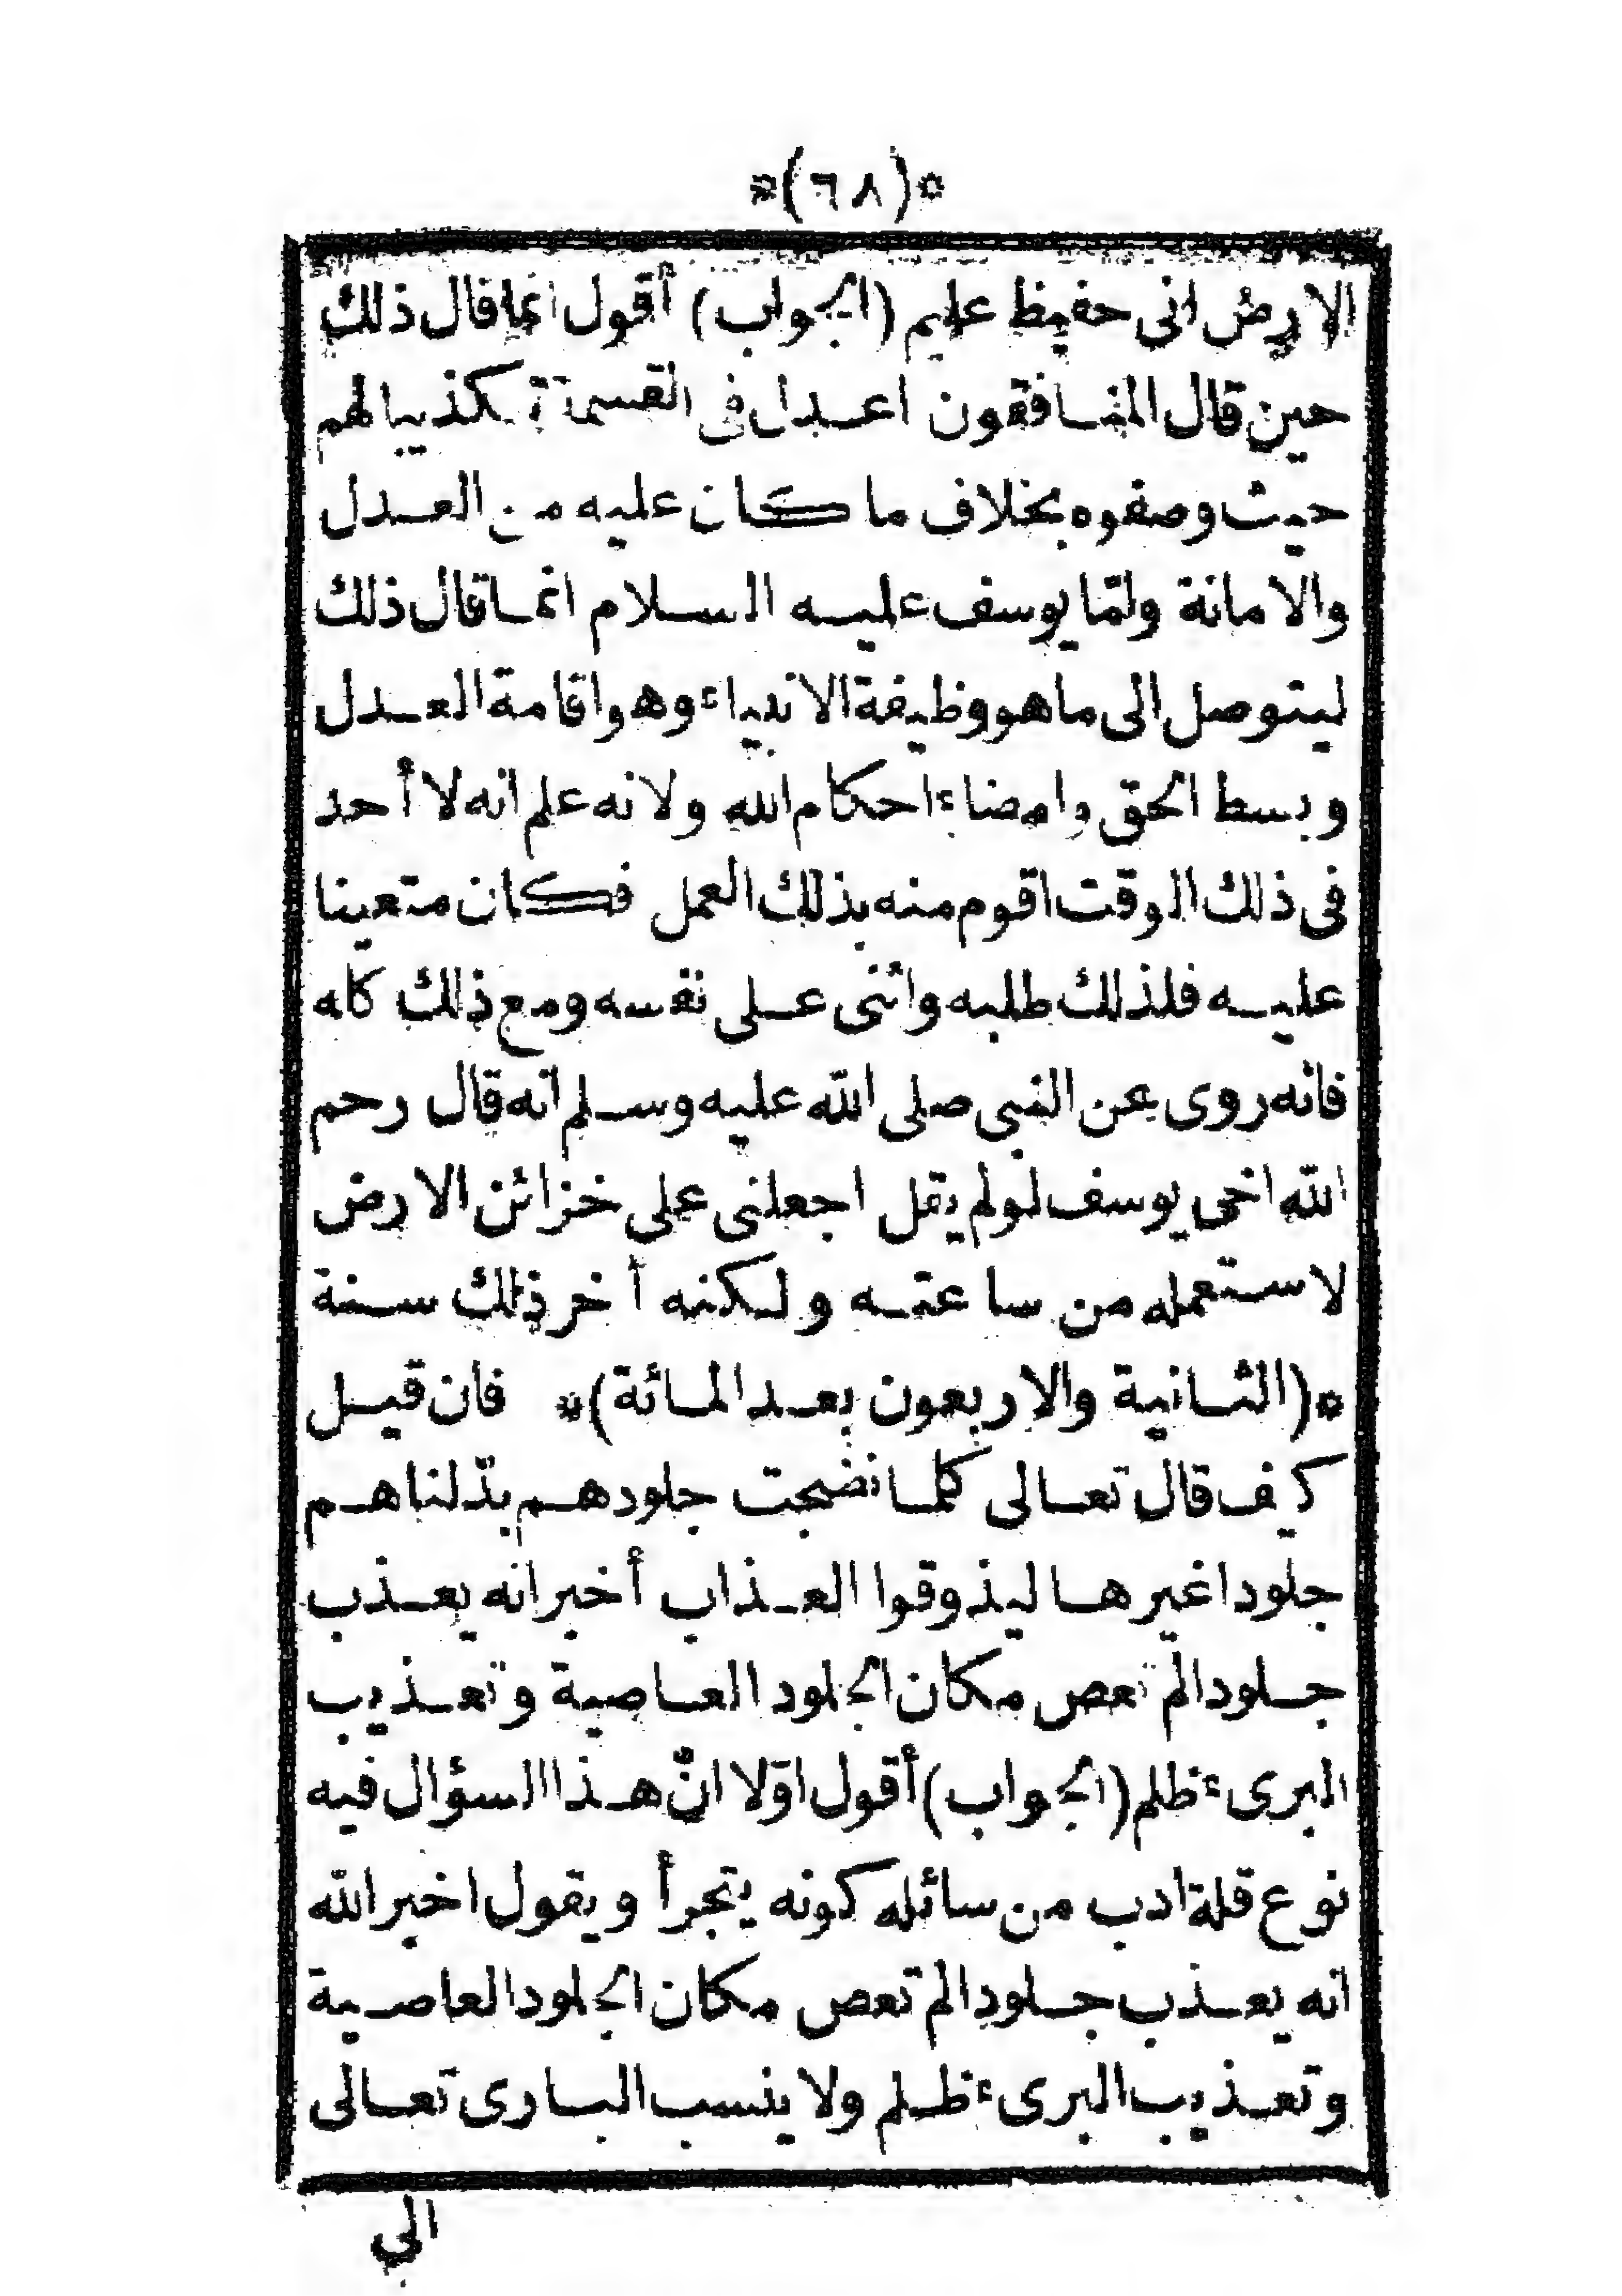 *(٦٨)*
الارض انى حفيظ عليم (الجواب) أقول انما قال ذلك
حين قال المنافقون اعدل فى القسمة تكذيبا لهم
حيث وصفوه بخلاف ما كان عليه من العدل
والامانة ولمّا يوسف عليه السلام انما قال ذلك
ليتوصل الى ما هو وظيفة الانبياء وهو اقامة العدل
وبسط الحق وامضاء احكام الله ولانه علم انه لا أحد
فى ذلك الوقت اقوم منه بذلك العمل فكان متعينا
عليه فلذلك طلبه واثنى على نفسه ومع ذلك كله
فانه روى عن النبى صلى الله عليه وسلم انه قال رحم
الله اخى يوسف لو لم يقل اجعلنى على خزائن الارض
لاستعمله من ساعته ولكنه أخر ذلك سنة
*(الثانية والاربعون بعد المائة)* فان قيل
كيف قال تعالى كلما نضجت جلودهم بدّلناهم
جلودا غيرها ليذوقوا العذاب أخبر انه يعذب
جلودا لم تعص مكان الجلود العاصية وتعذيب
البرىء ظلم (الجواب) أقول اوّلا انّ هذا السؤال فيه
نوع قلة ادب من سائله كونه يتجرأ ويقول اخبر الله
انه يعذب جلودا لم تعص مكان الجلود العاصية
وتعذيب البرىء ظلم ولا ينسب البارى تعالى
الى